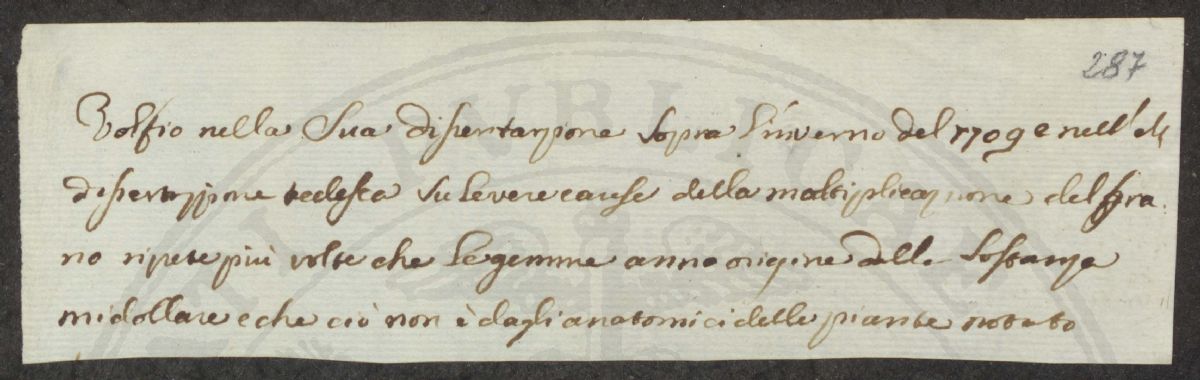 287
Volfio nella Sua disertazione sopra l'inverno del 1709 e nell'
disertazione tedesca su le vere cause della moltiplicazione del gra
no ripete più volte che le gemme anno origine dalla sostanza
midollare e che ciò non è dagli anatomici delle piante notato